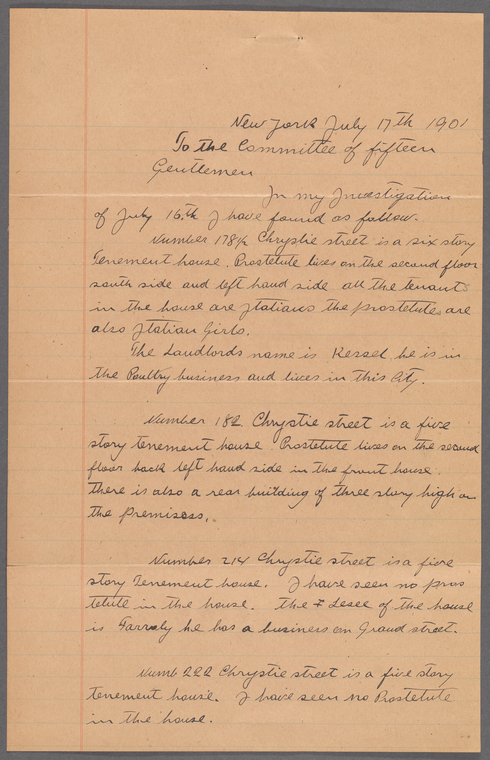 New York July 17th 1901
To the Committee of fifteen
Gentlemen
In my Investigation
of July 16th I have found as follow.
Number 178½ Chrystie street is a six story
Tenement house. Prostetute lives on the second floor
south side and left hand side all the tenants
in the house are Italians the prostetutes are
also Italian Girls.
The Landlords name is Kessel he is in
the Poultry business and lives in this City.
Number 182 Chrystie street is a five
story tenement house Prostetute lives on the second
floor back left hand side in the front house.
there is also a rear building of three story high on
the premisess.
Number 214 Chrystie street is a five
story Tenement house. I have seen no pros
tetute in the house. the Lesee of the house
is he has a business on Grand street.
Numb 222 Chrystie street is a five story
tenement house. I have seen no Prostetute
in the house.